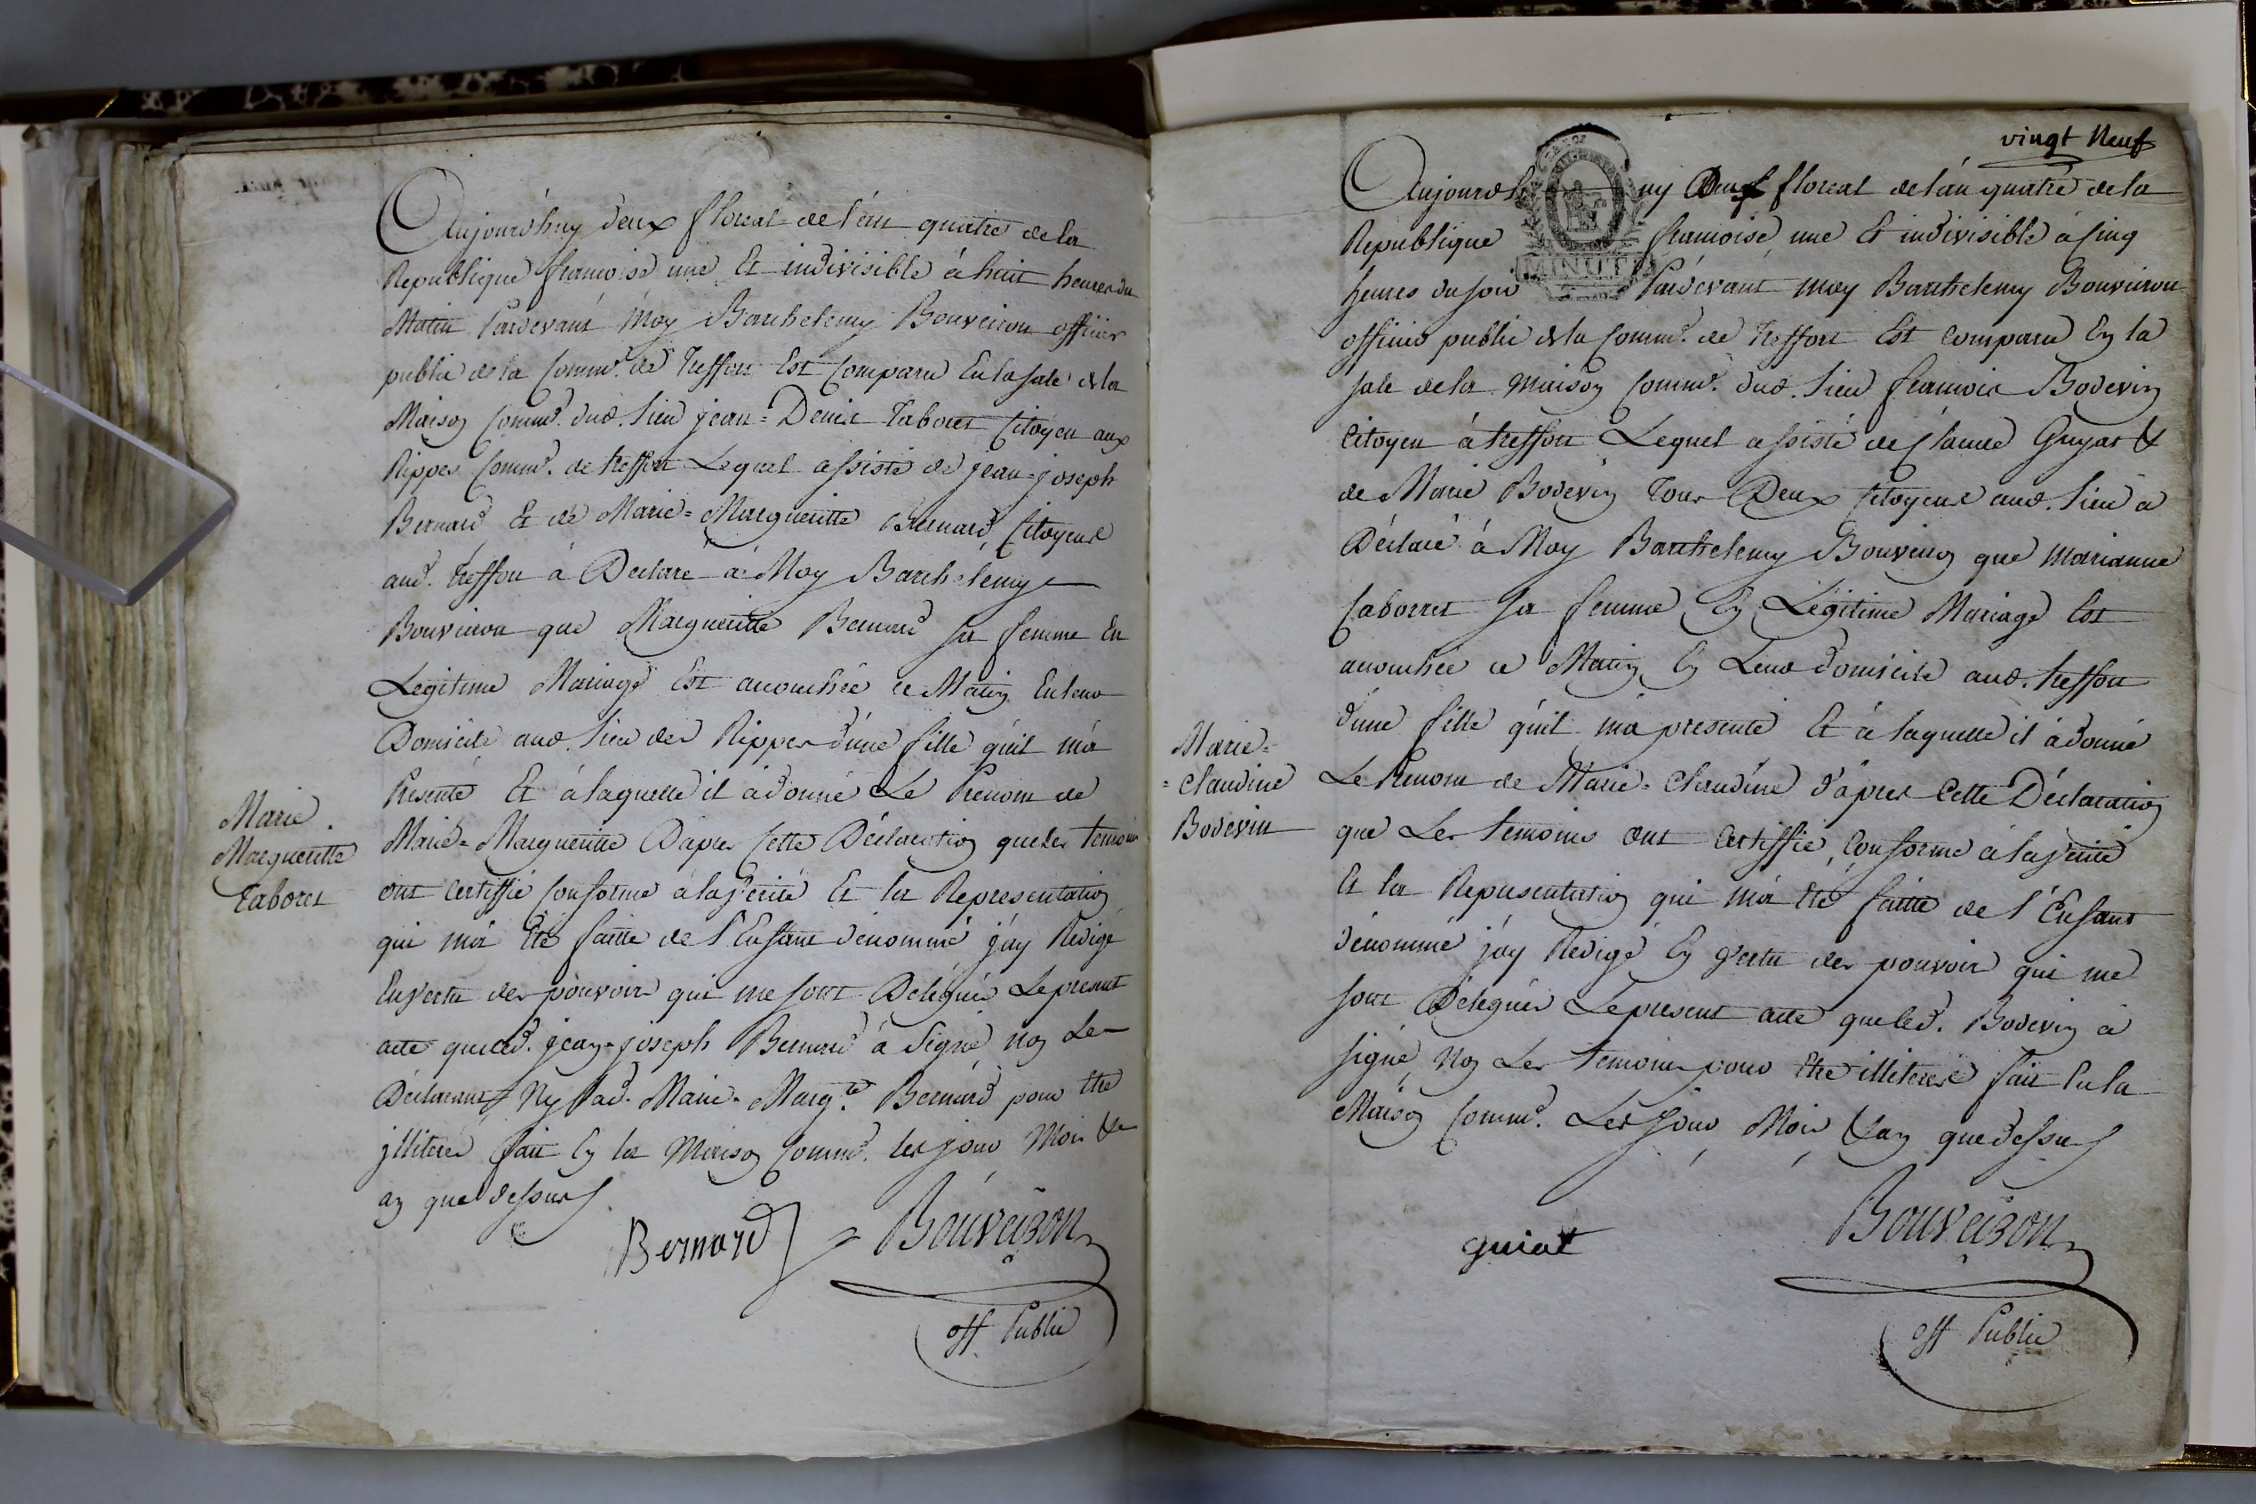 Aujourd'huy deux floreal de l'an quatre de la
Republique francoise une Et indivisible à huit heures du
Matin Pardevant Moy Barthelemy Bouveiron officier
public de la Commé. de treffort Est Comparu En la sale de la
Maison Commé. dud. lieu jean=Denis Taboret Citoyen aux
Rippes Commé. de treffort Lequel assisté de jean=joseph
Bernard Et de Marie=Margueritte Bernard Citoyens
aud. treffort à Déclaré à Moy Barthélemy
Bouveiron que Margueritte Bernard sa femme En
Légitime Mariage Est accouchée ce Matin En leur
Domicile aud. lieu des Rippes d'une fille qu'il m'a
Presenté Et à laquelle il à donné Le Prenom de
Marie=Margueritte D'apres Cette Déclaration que les temoins
ont certiffié Conforme à la verité Et la Representation
qui m'à Eté faitte de l'Enfant denommé j'ay Redigé
En vertu des pouvoirs qui me sont Delégués Le present
acte que led. jean=joseph Bernard à Signé non Le
Déclarant Ny lad. Marie=Margte. Bernard pour être
jlliteré fait En la Maison Commé. les jour Mois &
an que dessus
Marie
Margueritte
Taboret
Bernard Bouveiron
off. Public
vingt Neuf
Aujourd'huy Deux floreal de l'an quatre de la
Republique francoise une Et indivisible à cinq
heures du soir Pardevant moy Barthelemy Bouveiron
officier public de la Commé. de treffort Est comparu En la
sale de la Maison Commé. dud. lieu francois Bodevin
Citoyen à treffort Lequel assisté de Claude Guyat &
de Marie Bodevin Tous Deux Citoyens aud. lieu a
Déclaré à Moy Barthelemy Bouveiron que marianne
Caborret sa femme En Légitime Mariage Est
accouchée ce Matin En Leur domicile aud. treffort
d'une fille qu'il m'à presenté Et à laquelle il à donné
Le Prenom de Marie=Claudine d'apres Cette Déclaration
que Les temoins ont certiffié Conforme à la verité
Et la Representation qui m'à Eté faitte de l'Enfant
denommé j'ay Redigé En vertu des pouvoirs qui me
sont Délegués Le present acte que led. Bodevin à
signé Non Les temoins pour être illiterés fait En la
Maison Commé. Les jour, Mois, & an que dessus
Marie=
=Claudine
Bodevin
MINUTE
guiat Bouveiron
off Public